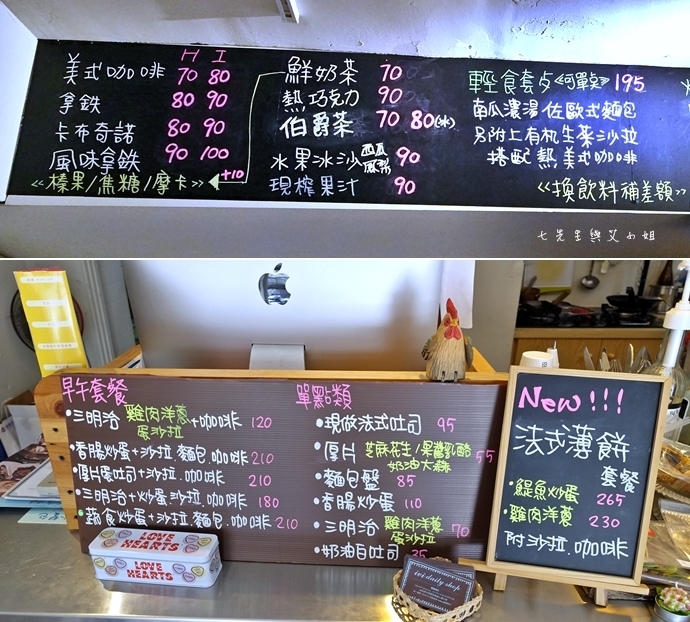 H I
美式咖啡 70 80
拿鉄 80 90
卡布奇諾 80 90
風味拿鉄 90 100
≪榛果/焦糖/摩卡≫ +10
鮮奶茶 70
熱巧克力 90
伯爵茶 70 80(冰)
水果冰沙 西瓜 鳳梨 90
現榨果汁 90
輕食套歺≪可單点≫ 195
南瓜濃湯佐歐式麵包
另附上有机生菜沙拉
搭配熱美式咖啡
≪換飲料補差額≫
七先生與艾小姐
早午套餐
•三明治 雞肉洋蔥 +咖啡 120
蛋沙拉
•香腸炒蛋+沙拉.麵包.咖啡 210
•厚片蛋吐司+沙拉.咖啡 210
•三明治+炒蛋.沙拉.咖啡 180
•蔬食炒蛋+沙拉.麵包.咖啡 210
單點類
•現做法式吐司 95
•厚片 芝麻花生/果醬乳酪 55
奶油大蒜
•麵包盤 85
•香腸炒蛋 110
•三明治 雞肉洋蔥 70
蛋沙拉
•奶油白吐司 35
New!!!
法式薄餅
套餐
•鯷魚炒蛋 265
•雞肉洋蔥 230
附沙拉.咖啡
LOVE
HEARTS
LOVE
HEARTS
daily shop